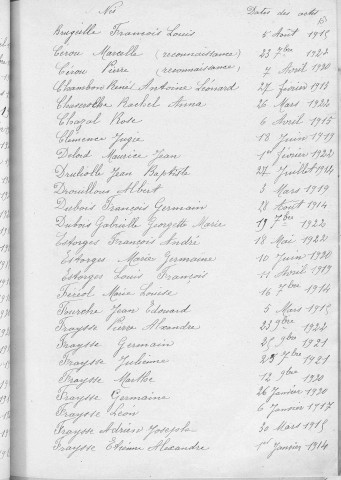 Nés Dates des actes
Brugielle François Louis 1er Août 1915
Cérou Marcelle (reconnaissance) 23 7bre 1922
Cérou Pierre (reconnaissance) 7 Avril 1920
Chambon René Antoine Léonard 27 février 1918
Chasseville Rachel Anna 26 Mars 1922
Chazal Rose 6 Avril 1915
Clémence Jugie 18 Juin 1919
Delord Maurice Jean 1er février 1922
Druliolle Jean Baptiste 27 Juillet 1914
Drouilloux Albert 3 Mars 1919
Dubois François Germain 28 Août 1914
Dubois Gabrielle Georgette Marie 19 7bre 1922
Estorges François André 18 Mai 1922
Estorges Marie Germaine 10 Juin 1920
Estorges Louis François 11 Avril 1919
Fériol Marie Louise 16 7bre 1914
Fourche Jean Edouard 5 Mars 1915
Fraysse Pierre Alexandre 23 9bre 1922
Fraysse Germain 25 9bre 1921
Fraysse Julienne 25 7bre 1921
Fraysse Marthe 12 9bre 1920
Fraysse Germaine 26 Janvier 1920
Fraysse Léon 6 Janvier 1917
Fraysse Adrien Joseph 30 Mars 1915
Fraysse Etienne Alexandre 1er Janvier 1914